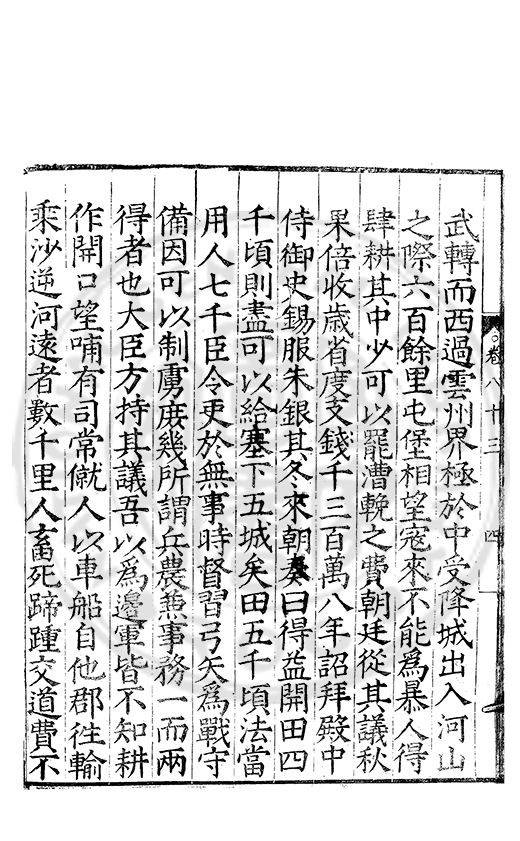 卷八十三 四
武轉而西過雲州界極於中受降城出入河山
之際六百餘里屯堡相望寇來不能為暴人得
肆耕其中少可以罷漕輓之費朝廷從其議秋
果倍收歲省度支錢千三百萬八年詔拜殿中
侍御史錫服朱銀其冬來朝奏曰得益開田四
千頃則盡可以給塞下五城矣田五千頃法當
用人七千臣令吏於無事時督習弓矢為戰守
備因可以制虜庶幾所謂兵農兼事務一而兩
得者也大臣方持其議吾以為邊軍皆不知耕
作開口望哺有司常僦人以車船自他郡往輸
乘沙逆河遠者數千里人畜死蹄踵交道費不